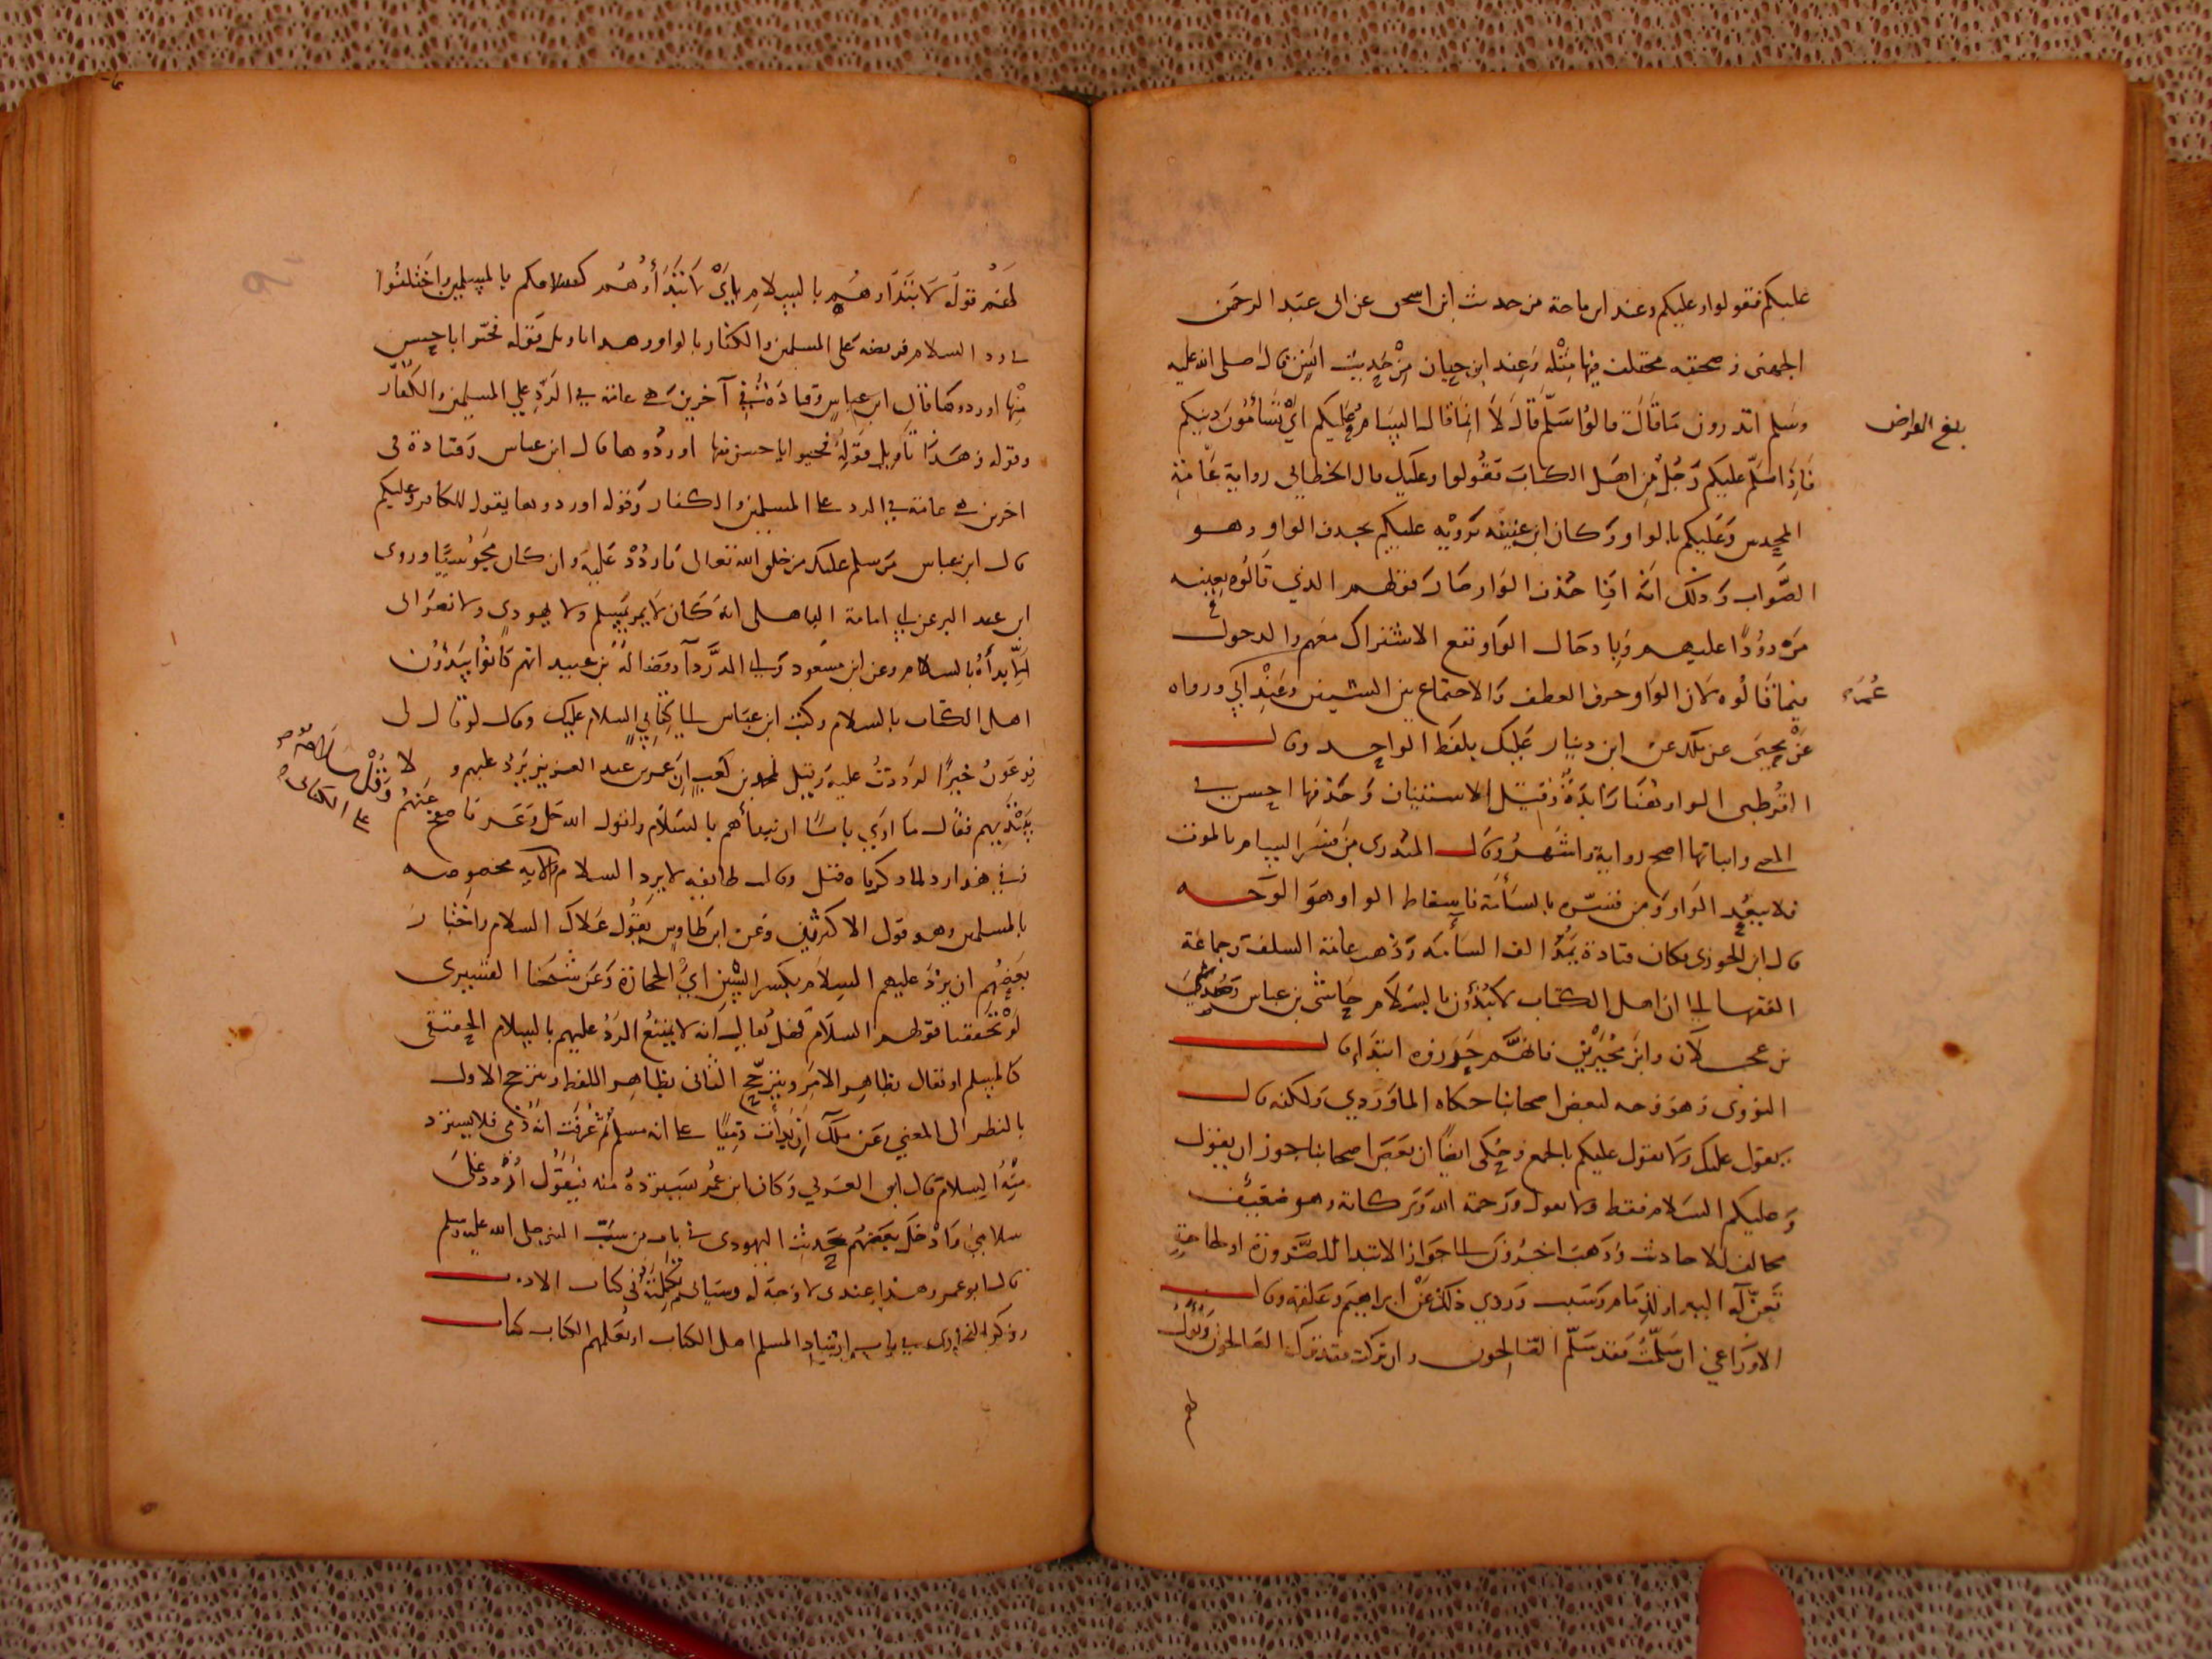 عليكم فقولوا وعليكم وعند ابن ماجة من حديث ابن اسحق عن ابى عبد الرحمن
الجهنى وصحبته مختلف فيها مثله وعند ابن حبان من حديث انس قال صلى الله عليه
وسلم اتدرون ما قال قالوا سلم قال لا انما قال السام عليكم اي تسأمون دينكم
فاذا سلم عليكم رجل من اهل الكتاب فقولوا وعليك قال الخطابى رواية عامة
المحدثين وعليكم بالواو وكان ابن عيينة يرويه عليكم بحذف الواو وهو
الصواب وذلك انه اذا حذف الواو صار قولهم الذي قالوه بعينه
مردودا عليهم وبادخال الواو تقع الاشتراك معهم والدخول
فيما قالوه لان الواو حرف العطف والاجتماع بين الشيئين ورواه
عن يحيى عن ملك عن ابن دينار عليك بلفظ الواحد وقال
القرطبى الواو هنا زائدة وقيل للاستئناف وحذفها احسن في
المعنى واثباتها اصح رواية واشهر وقال المنذرى من فسر السام بالموت
فلا يبعد الواو ومن فسره بالسآمة فاسقاط الواو هو الوجه
قال ابن الجوزى وكان قتادة يمد الف السآمة وذهب عامة السلف وجماعة
الفقها الى ان اهل الكتاب لا يبدؤن بالسلام حاشى بن عباس وصدى
بن عجلان وابن محيريز فانهم جوزوه ابتدا قال
النووى وهو وجه لبعض اصحابنا حكاه الماوردي ولكنه قال
يقول عليك ولا يقول عليكم بالجمع وحكى ايضا ان بعض اصحابنا جوز ان يقول
وعليكم السلام فقط ولا يقول ورحمة الله وبركاته وهو ضعيف
مخالف للاحاديث وذهب اخرون الى جواز الابتدا للضرورة او لحاجة
تعن له اليه او لذمام وسبب وروي ذلك عن ابراهيم وعلقمة وقال
الاوزاعي ان سلمت فقد سلم الصالحون وان تركت فقد ترك الصالحون وتؤول
بلغ العراض
عمدة
لهم قوله لا تبتدأوهم بالسلام اي لا تبتدأوهم كسلامكم بالمسلمين واختلفوا
في رد السلام فريضة على المسلمين والكفار بالواو وهذا تاويل قوله فحيوا باحسن
منها او ردوها قال ابن عباس وقتادة في آخرين هي عامة في الرد على المسلمين والكفار
وقوله وهذا تأويل قوله فحيوا باحسن منها او ردوها قال ابن عباس وقتادة فى
اخرين هي عامة في الرد على المسلمين والكفار وقوله او ردوها يقول للكافر وعليكم
قال ابن عباس من سلم عليك من خلق الله تعالى فاردد عليه وان كان مجوسيا وروى
ابن عبد البر عن ابي امامة الباهلى انه كان لا يمر بمسلم ولا يهودي ولا نصرانى
الا بدأه بالسلام وعن ابن مسعود وابي الدردآ وفضالة بن عبيد انهم كانوا يبدؤن
اهل الكتاب بالسلام وكتب ابن عباس الى كتابي السلام عليك وقال لو قال لى
فرعون خيرا لرددت عليه وقيل لمحمد بن كعب ان عمر بن عبد العزيز يرد عليهم ولا
يبتديهم فقال ما ارى باسا ان نبدأهم بالسلام لقول الله جل وعز فاصفح عنهم وقل سلام
وقال طائفة لا يرد السلام والاية مخصوصة
بالمسلمين وهو قول الاكثرين وعن ابن طاوس يقول علاك السلام واختار
بعضهم ان يرد عليهم السلام بكسر السين اي الحجارة وعن شيخنا القشيرى
لو تحققنا قولهم السلام فضلا يقال انه لا يمتنع الرد عليهم بالسلام الحقيقى
كالمسلم او يقال بظاهر الامر ويترجح الثانى بظاهر اللفظ ويترجح الاول
بالنظر الى المعني وعن ملك ان بدأت ذميا على انه مسلم ثم عرفت انه ذمى فلا يسترد
منه السلام قال ابن العربي وكان ابن عمر يسترده منه فيقول اردد على
سلامي وادخل بعضهم حديث اليهودى في باب من سب النبي صلى الله عليه وسلم
قال ابو عمر وهذا عندى لا وجه له وسياتى تكملته في كتاب الادب
وذكر البخارى في باب ارشاد المسلم اهل الكتاب او يعلمهم الكتاب كتاب